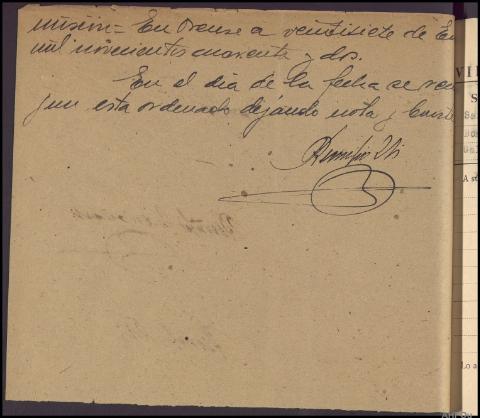 misión= En Orense a veintisiete de En
mil novecientos cuarenta y dos.
En el dia de la fecha se
esta ordenado dejando nota y
Remigio
VI
S
A s
Lo a